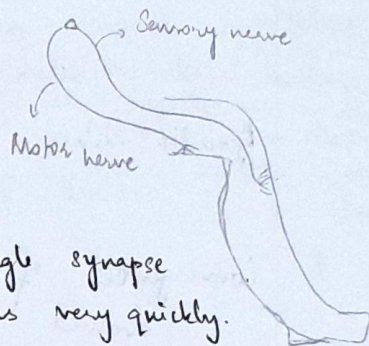 Sensory nerve
Motor nerve
gle synapse
s very quickly.